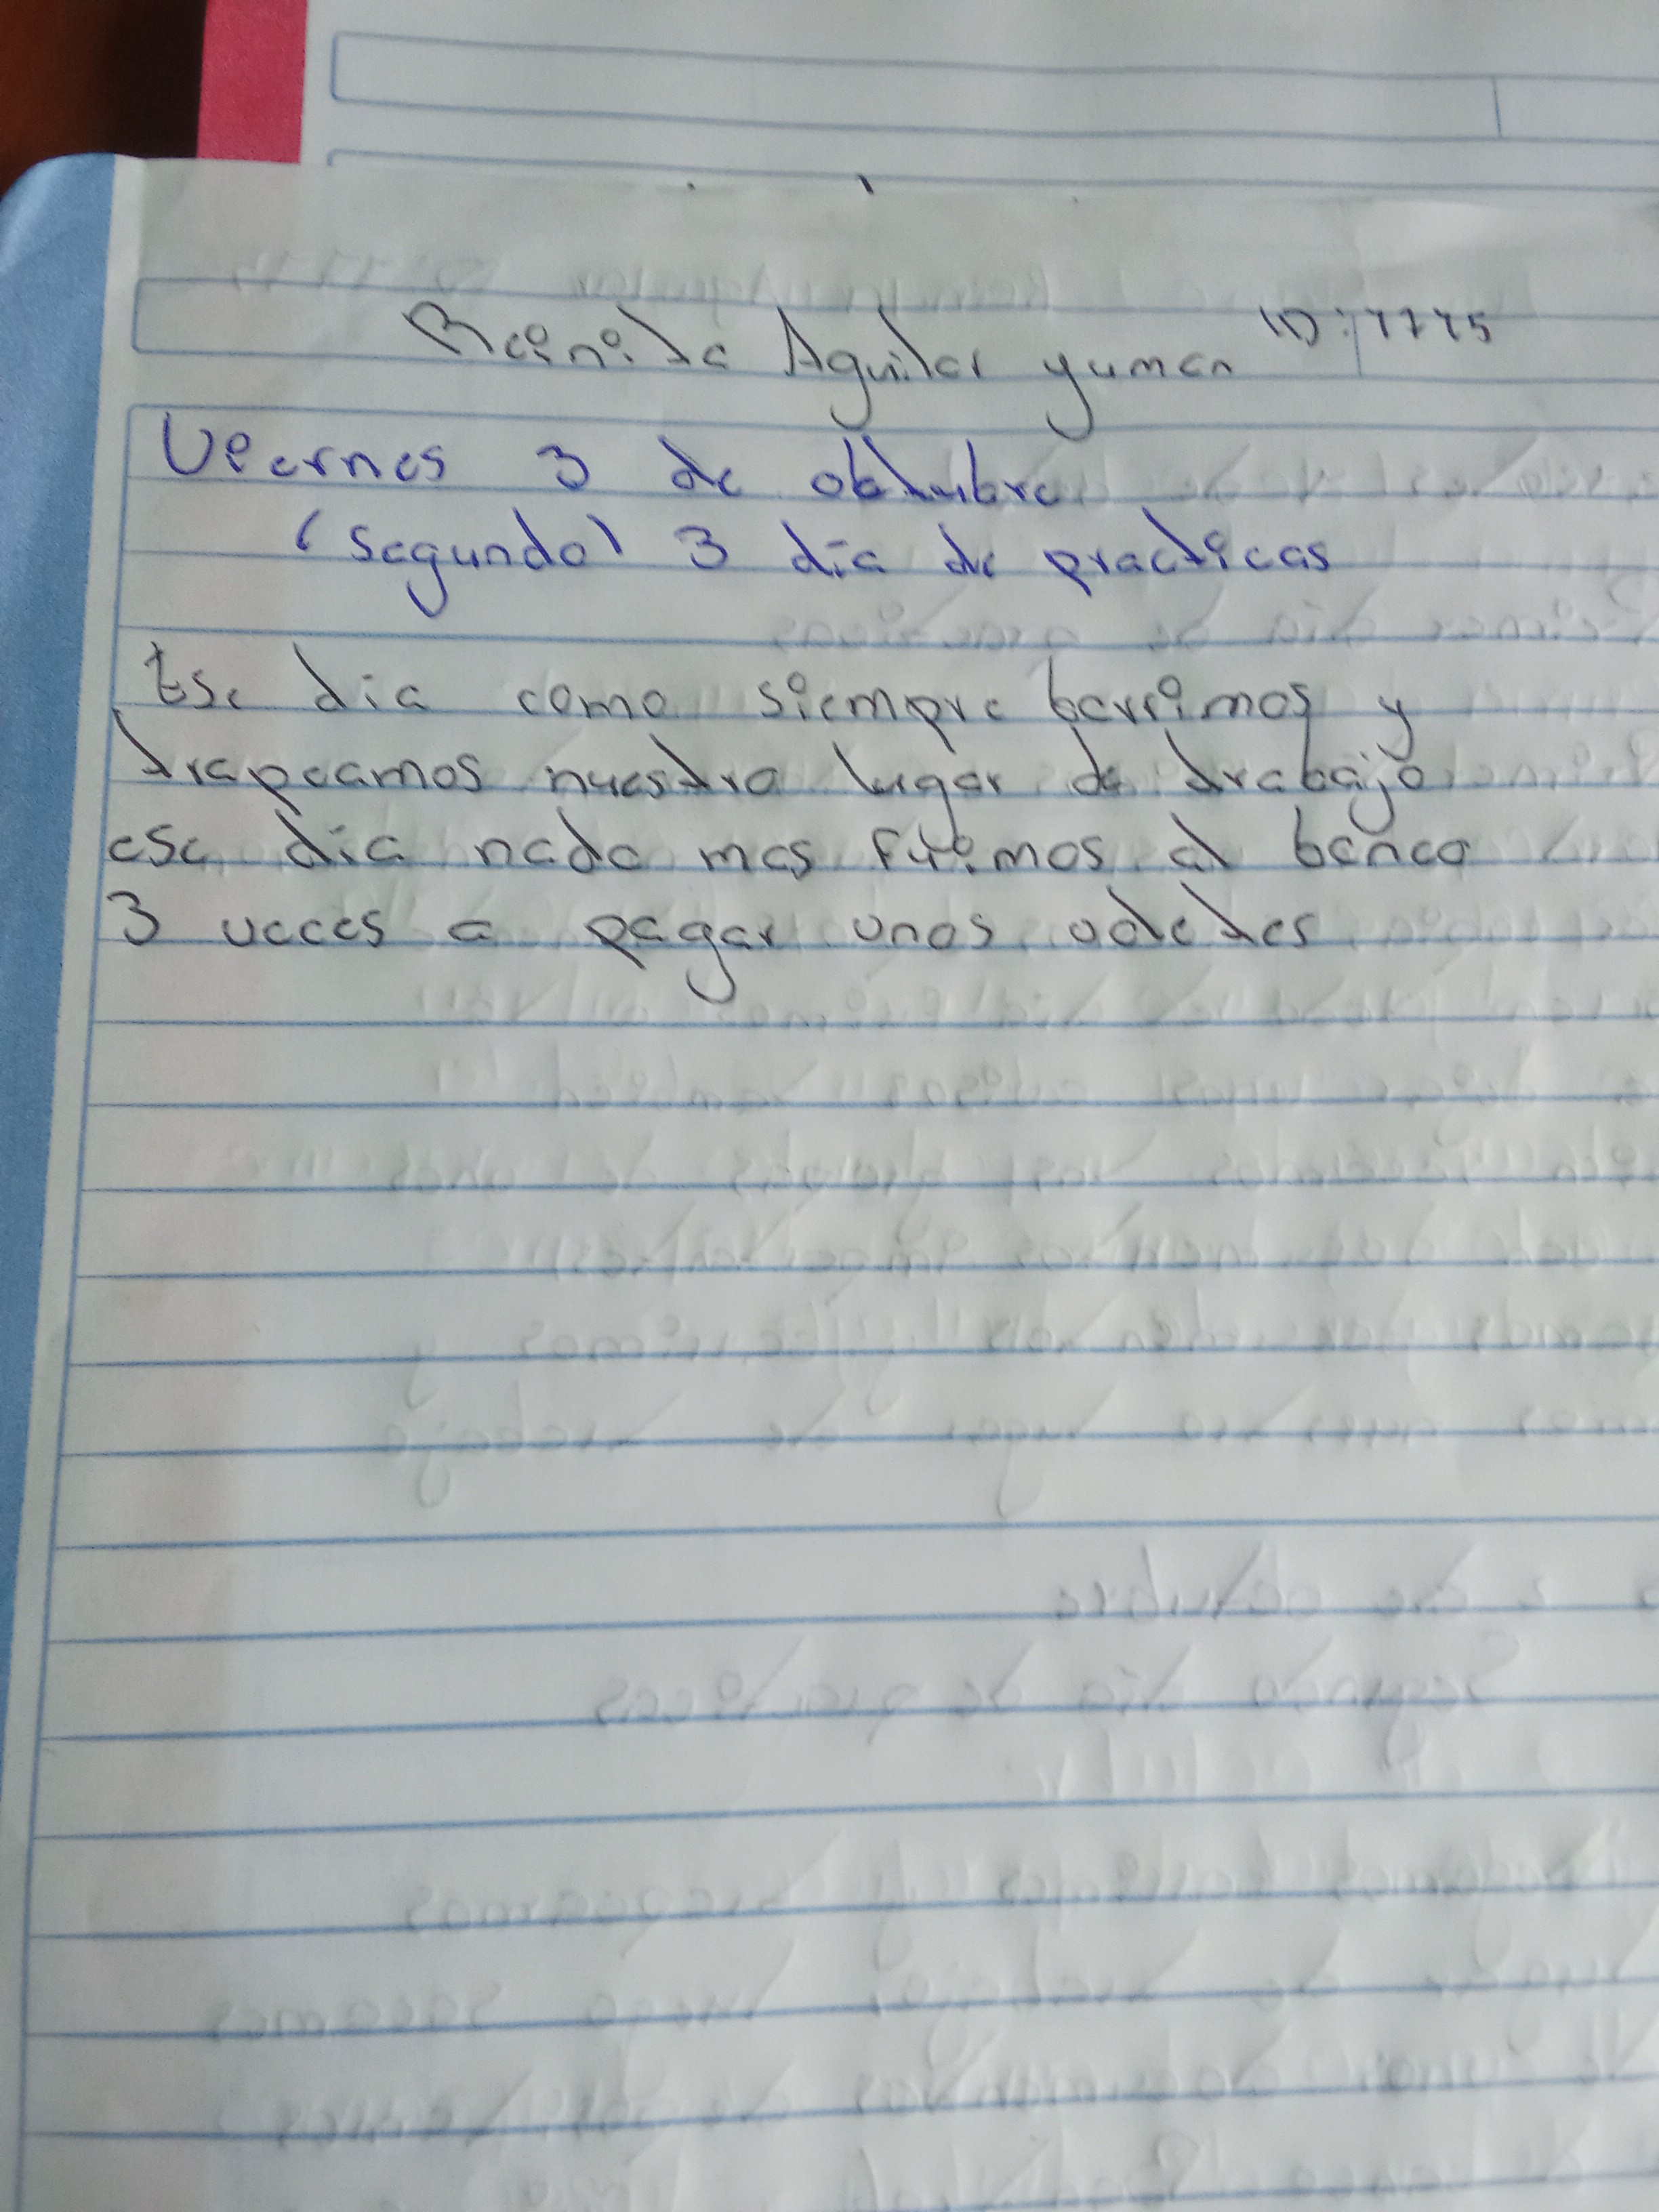 Reinilda Aguilar yuman ID: 7775
Viernes 3 de obtubre
(Segundo) 3 dia de practicas
Ese dia como siempre barrimos y
trapeamos nuestro lugar de trabajo
ese dia nada mas fuimos al banco
3 veces a pagar unos